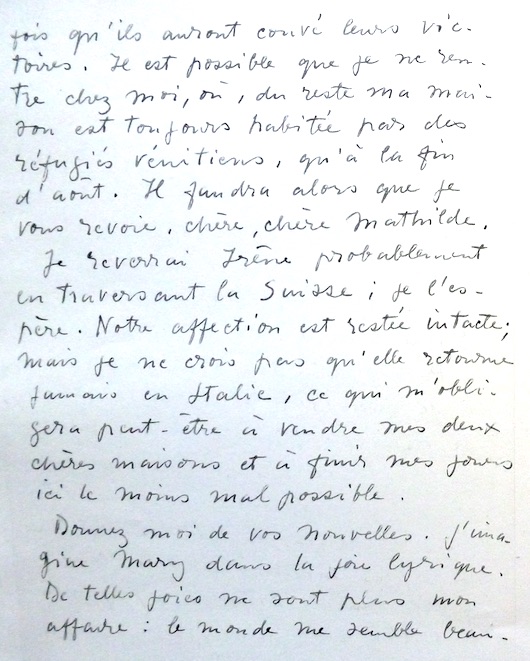 fois qu'ils auront couvé leurs vic-
toires. Il est possible que je ne ren-
tre chez moi, où, du reste ma mai-
son est toujours habitée par des
réfugiés vénitiens, qu'à la fin
d'août. Il faudra alors que je
vous revoie, chère, chère Mathilde.
Je reverrai Irène probablement
en traversant la Suisse ; je l'es-
père. Notre affection est restée intacte;
mais je ne crois pas qu'elle retourne
jamais en Italie, ce qui m'obli-
gera peut-être à vendre mes deux
chères maisons et à finir mes jours
ici le moins mal possible.
Donnez moi de vos nouvelles. J'ima-
gine Mary dans la joie lyrique.
De telles joies ne sont plus mon
affaire : le monde me semble beau-